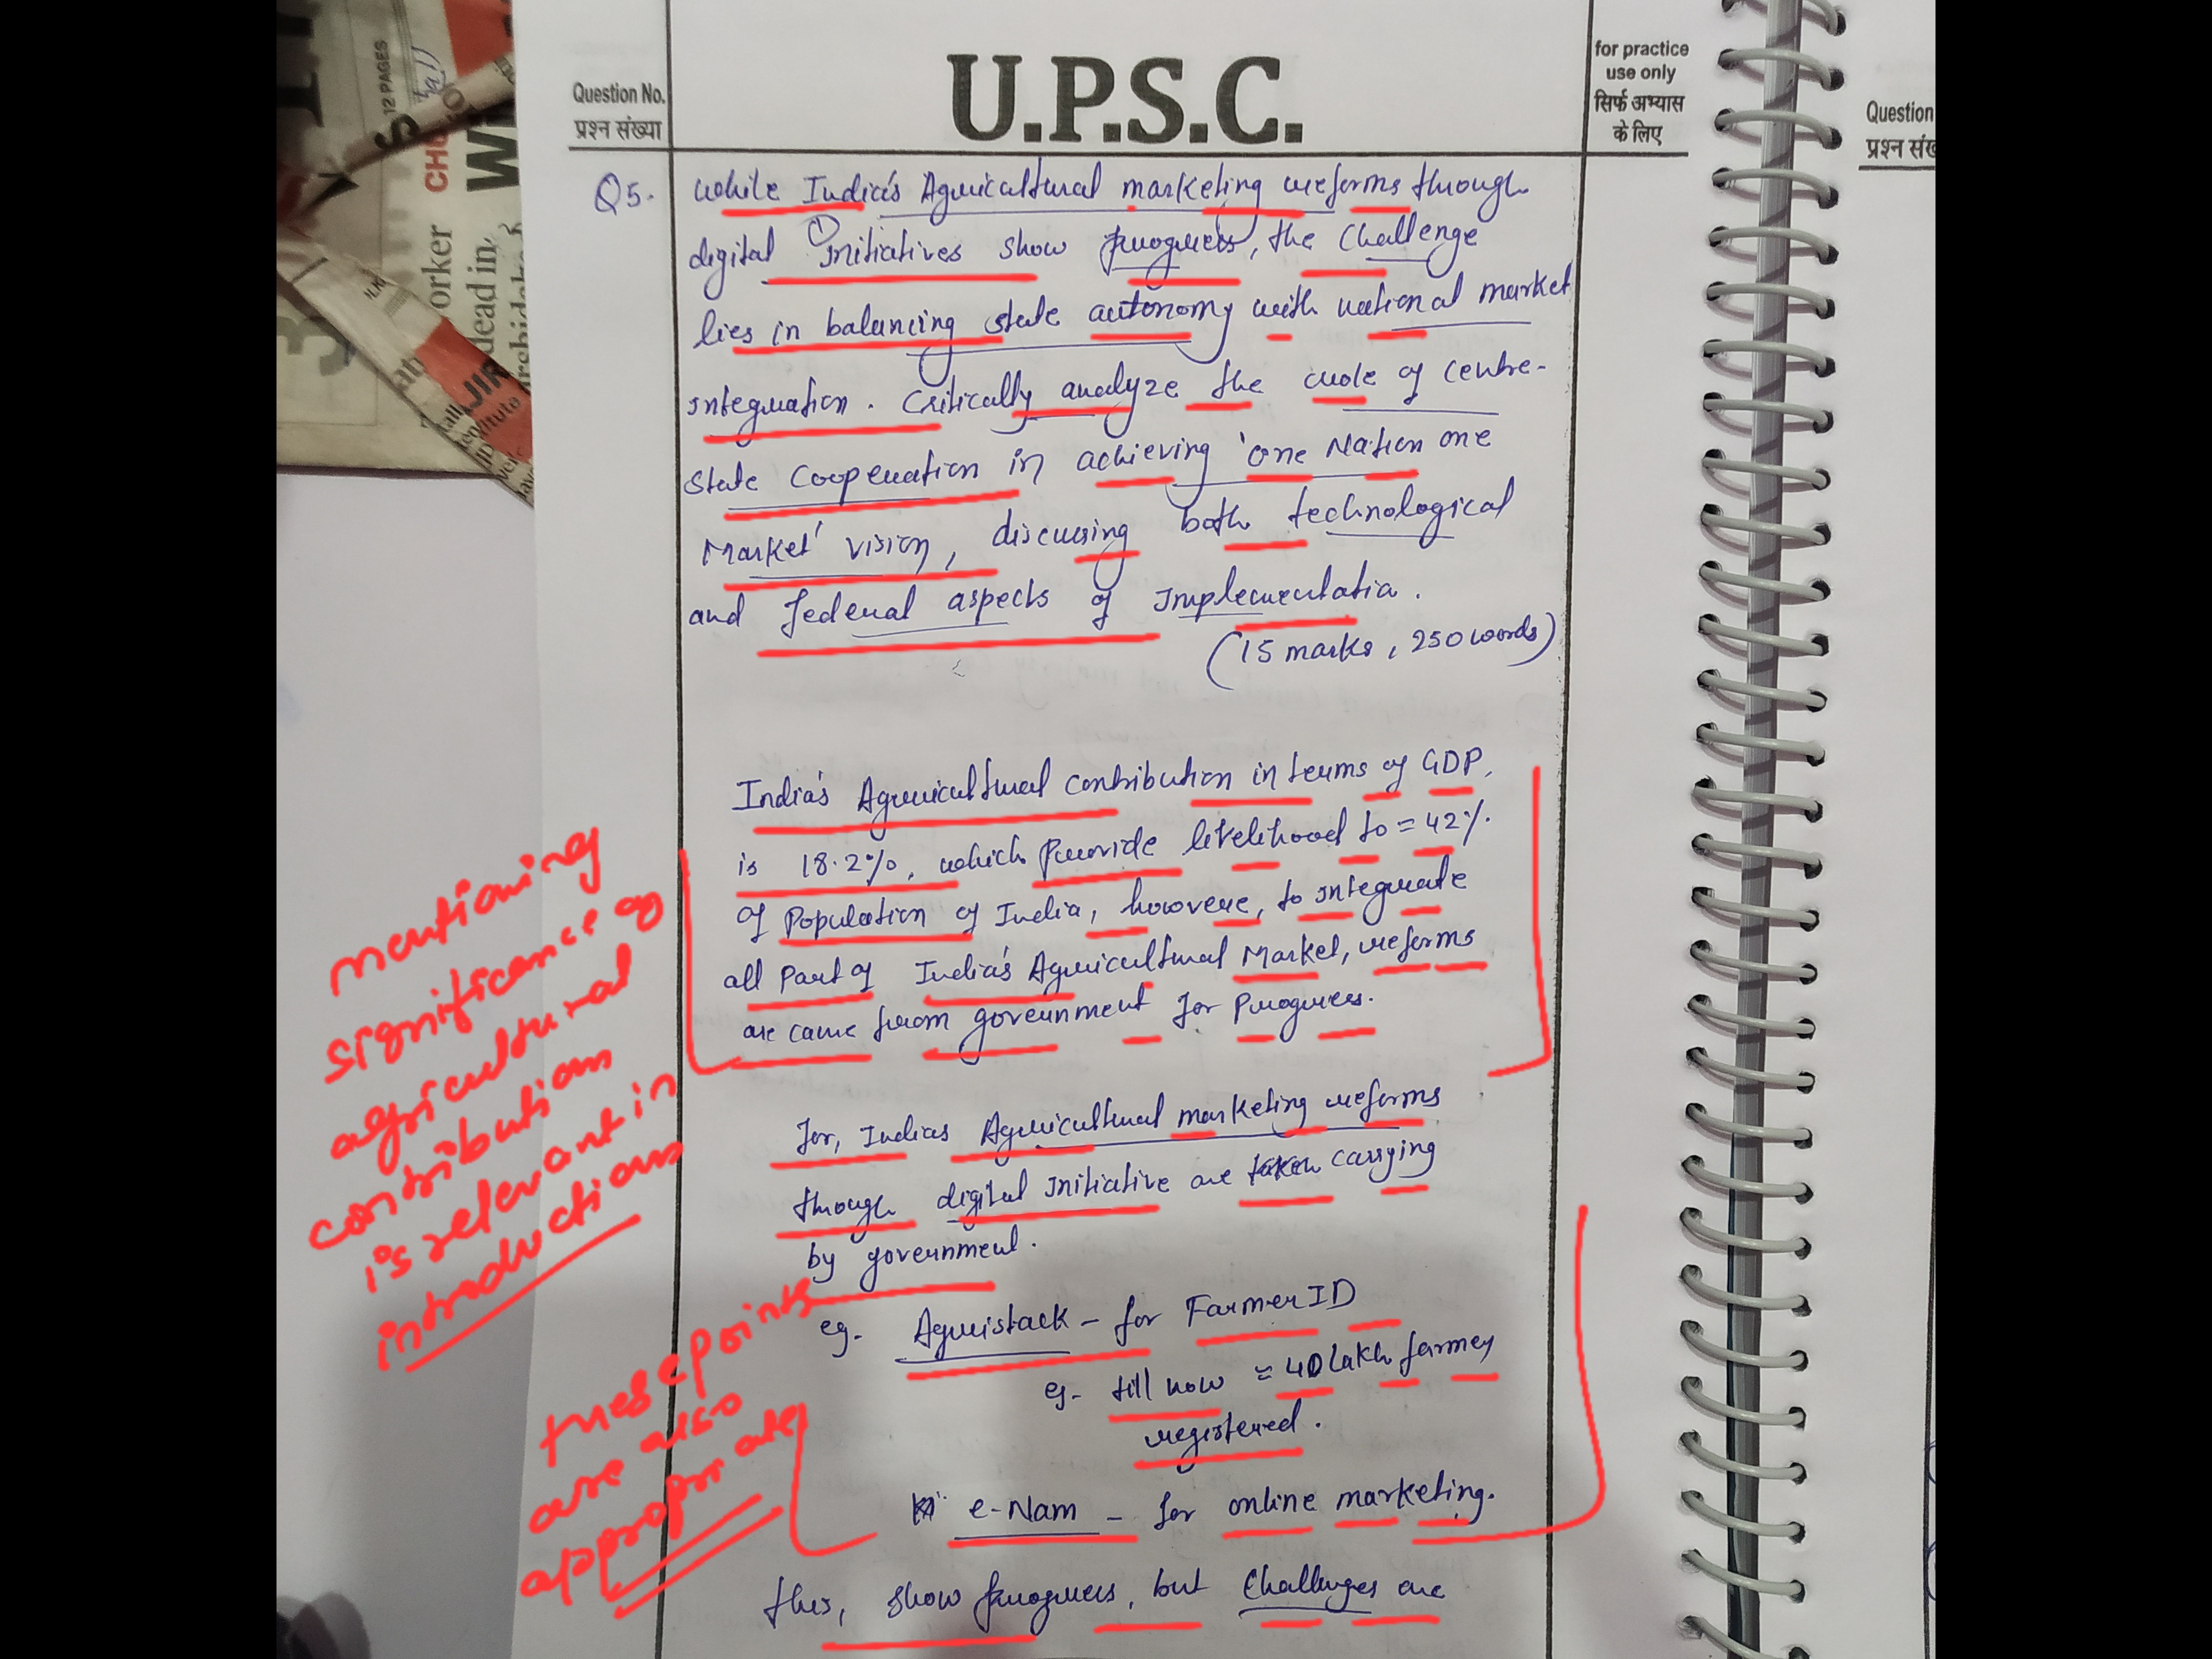 12 PAGES
CHO
W
orker
dead in
rshidab
JIR
Institute
Question No.
प्रश्न संख्या
U.P.S.C.
for practice
use only
सिर्फ अभ्यास
के लिए
Question
प्रश्न संख
Q5. While India's Agricultural marketing reforms through
digital Initiatives show progress, the challenge
lies in balancing state autonomy with national market
integration. Critically analyze the role of centre-
state cooperation in achieving 'one Nation one
Market' vision, discussing both technological
and federal aspects of Implementatio.
(15 marks, 250 words)
India's Agricultural contribution in terms of GDP,
is 18.2%, which provide livelihood to = 42%
of Population of India, however, to integrate
all Part of India's Agricultural Market, reforms
are came from government for Progress.
for, Indias Agricultural marketing reforms
through digital Initiative are taken carrying
by government.
eg. Agristack - for Farmer ID
eg- till now ≈ 40 lakh farmer
registered.
e-Nam - for online marketing.
this, show progress, but challenges are
mentioning
significance of
agricultural
contribution
is relevant in
introduction
these points
are also
appropriate